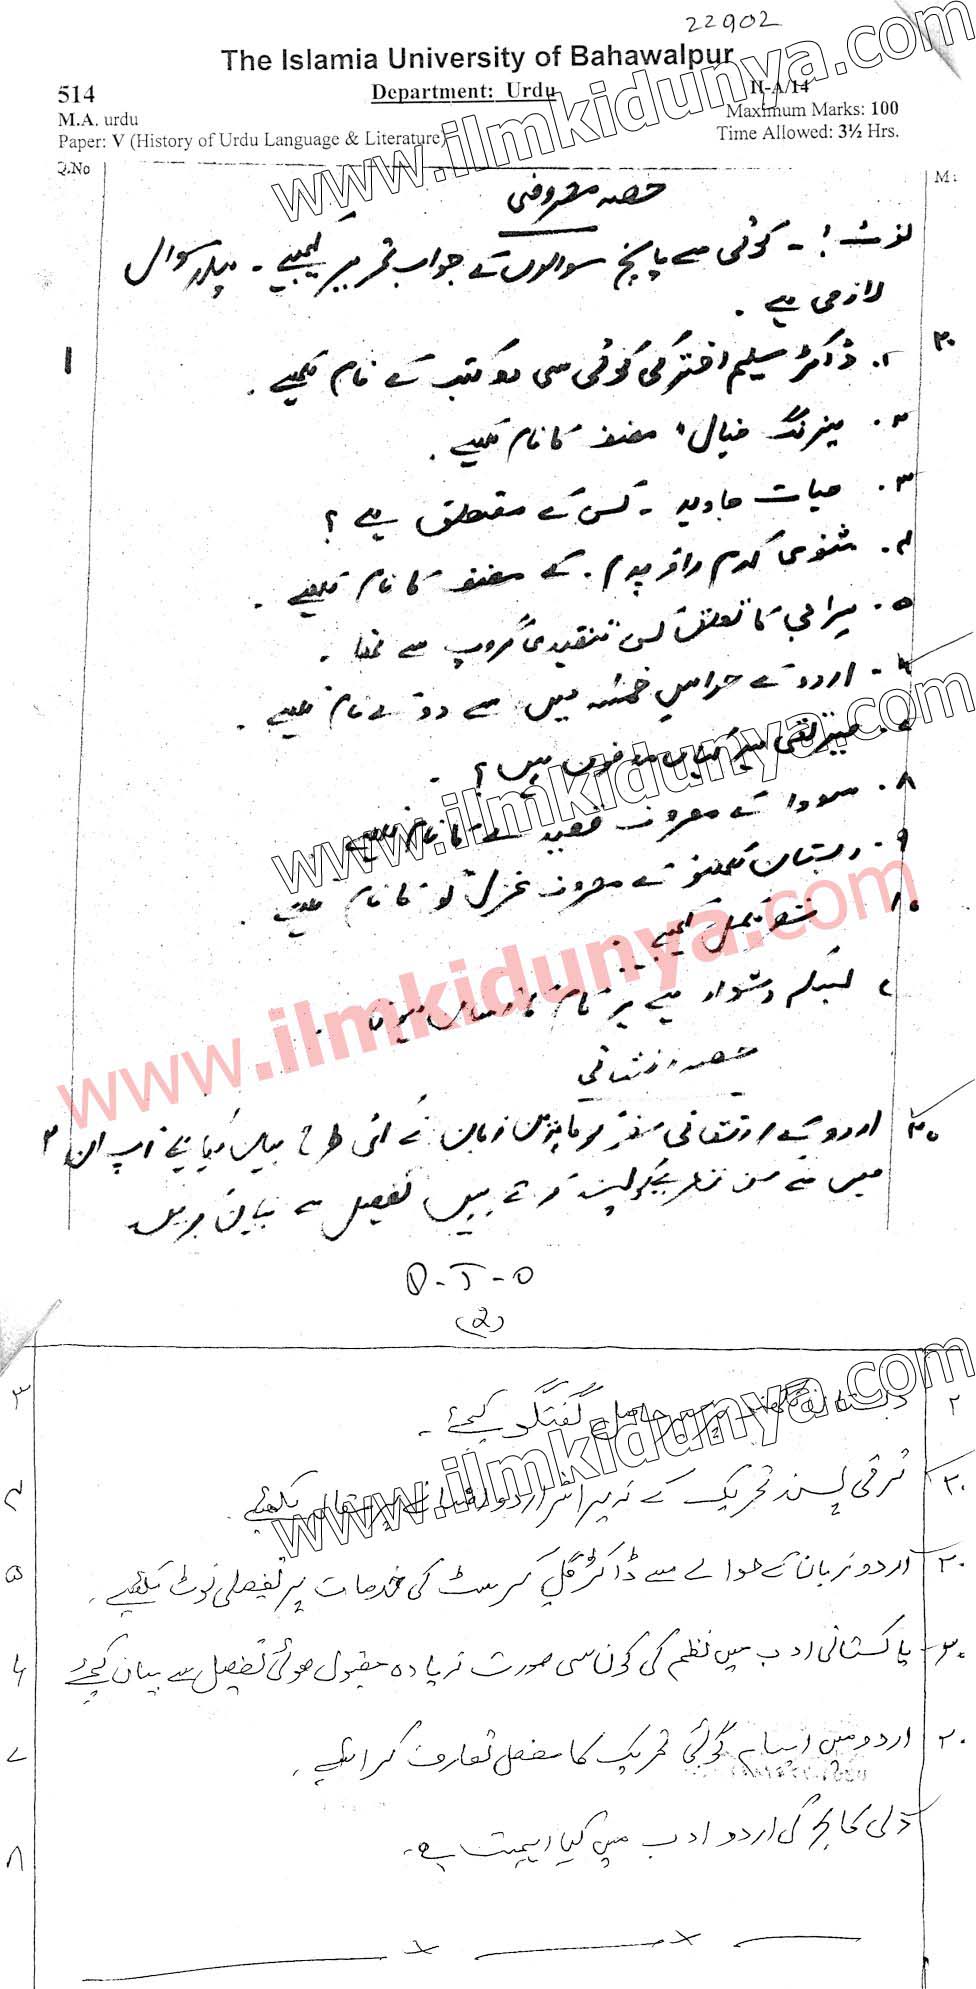 22902
The Islamia University of Bahawalpur
514
Department: Urdu
II-A/14
M.A. urdu
Maximum Marks: 100
Paper: V (History of Urdu Language & Literature)
Time Allowed: 3½ Hrs.
Q.No
M:
حصہ معروضی
نوٹ! - کوئی سے پانچ سوالوں کے جواب تحریر کیجیے - پہلا سوال
لازمی ہے .
1
۲۰
۱. ڈاکٹر سلیم اختر کی کوئی سی دو کتب کے نام لکھیے .
۲. نیرنگ خیال، مصنف کا نام لکھیے .
۳. حیات جاوید - کس کے متعلق ہے ؟
۴. مثنوی کدم راؤ پدم . کے مصنف کا نام لکھیے .
۵. میرا جی کا تعلق کس تنقیدی گروپ سے تھا .
۶. اردو کے عناصر خمسہ میں سے دو کے نام لکھیے .
۷. میر تقی میر کہاں مدفون ہیں ؟
۸. سودا کے معروف قصیدے کا نام لکھیے .
۹. دبستان لکھنؤ کے معروف غزل گو کا نام لکھیے .
۱۰. شعر مکمل کیجیے .
؎ بسکہ دشوار ہے ہر کام کا آساں ہونا .
حصہ انشائی
۲ اردو کے ارتقائی سفر کو ماہرین زبان نے کئی طرح بیان کیا ہے آپ ان ۲۰
میں سے کس نظریے کو پسند کرتے ہیں تفصیل سے بیان کریں
P-T-O
(2)
۳ دبستان لکھنؤ پر حاصل گفتگو کیجئے - ۲
۴ ترقی پسند تحریک کے زیر اثر اردو افسانے پر مقالہ لکھئیے . ۲۰
۵ اردو زبان کے حوالے سے ڈاکٹر گل کرسٹ کی خدمات پر تفصیلی نوٹ لکھئیے . ۲۰
۶ پاکستانی ادب میں نظم کی کون سی صورت زیادہ مقبول ہوئی تفصیل سے بیان کیجئے ۲۰
۷ اردو میں ایہام گوئی تحریک کا مفصل تعارف کرائیے . ۲۰
۸ دلی کالج کی اردو ادب میں کیا اہمیت ہے .
www.ilmkidunya.com
www.ilmkidunya.com
www.ilmkidunya.com
www.ilmkidunya.com